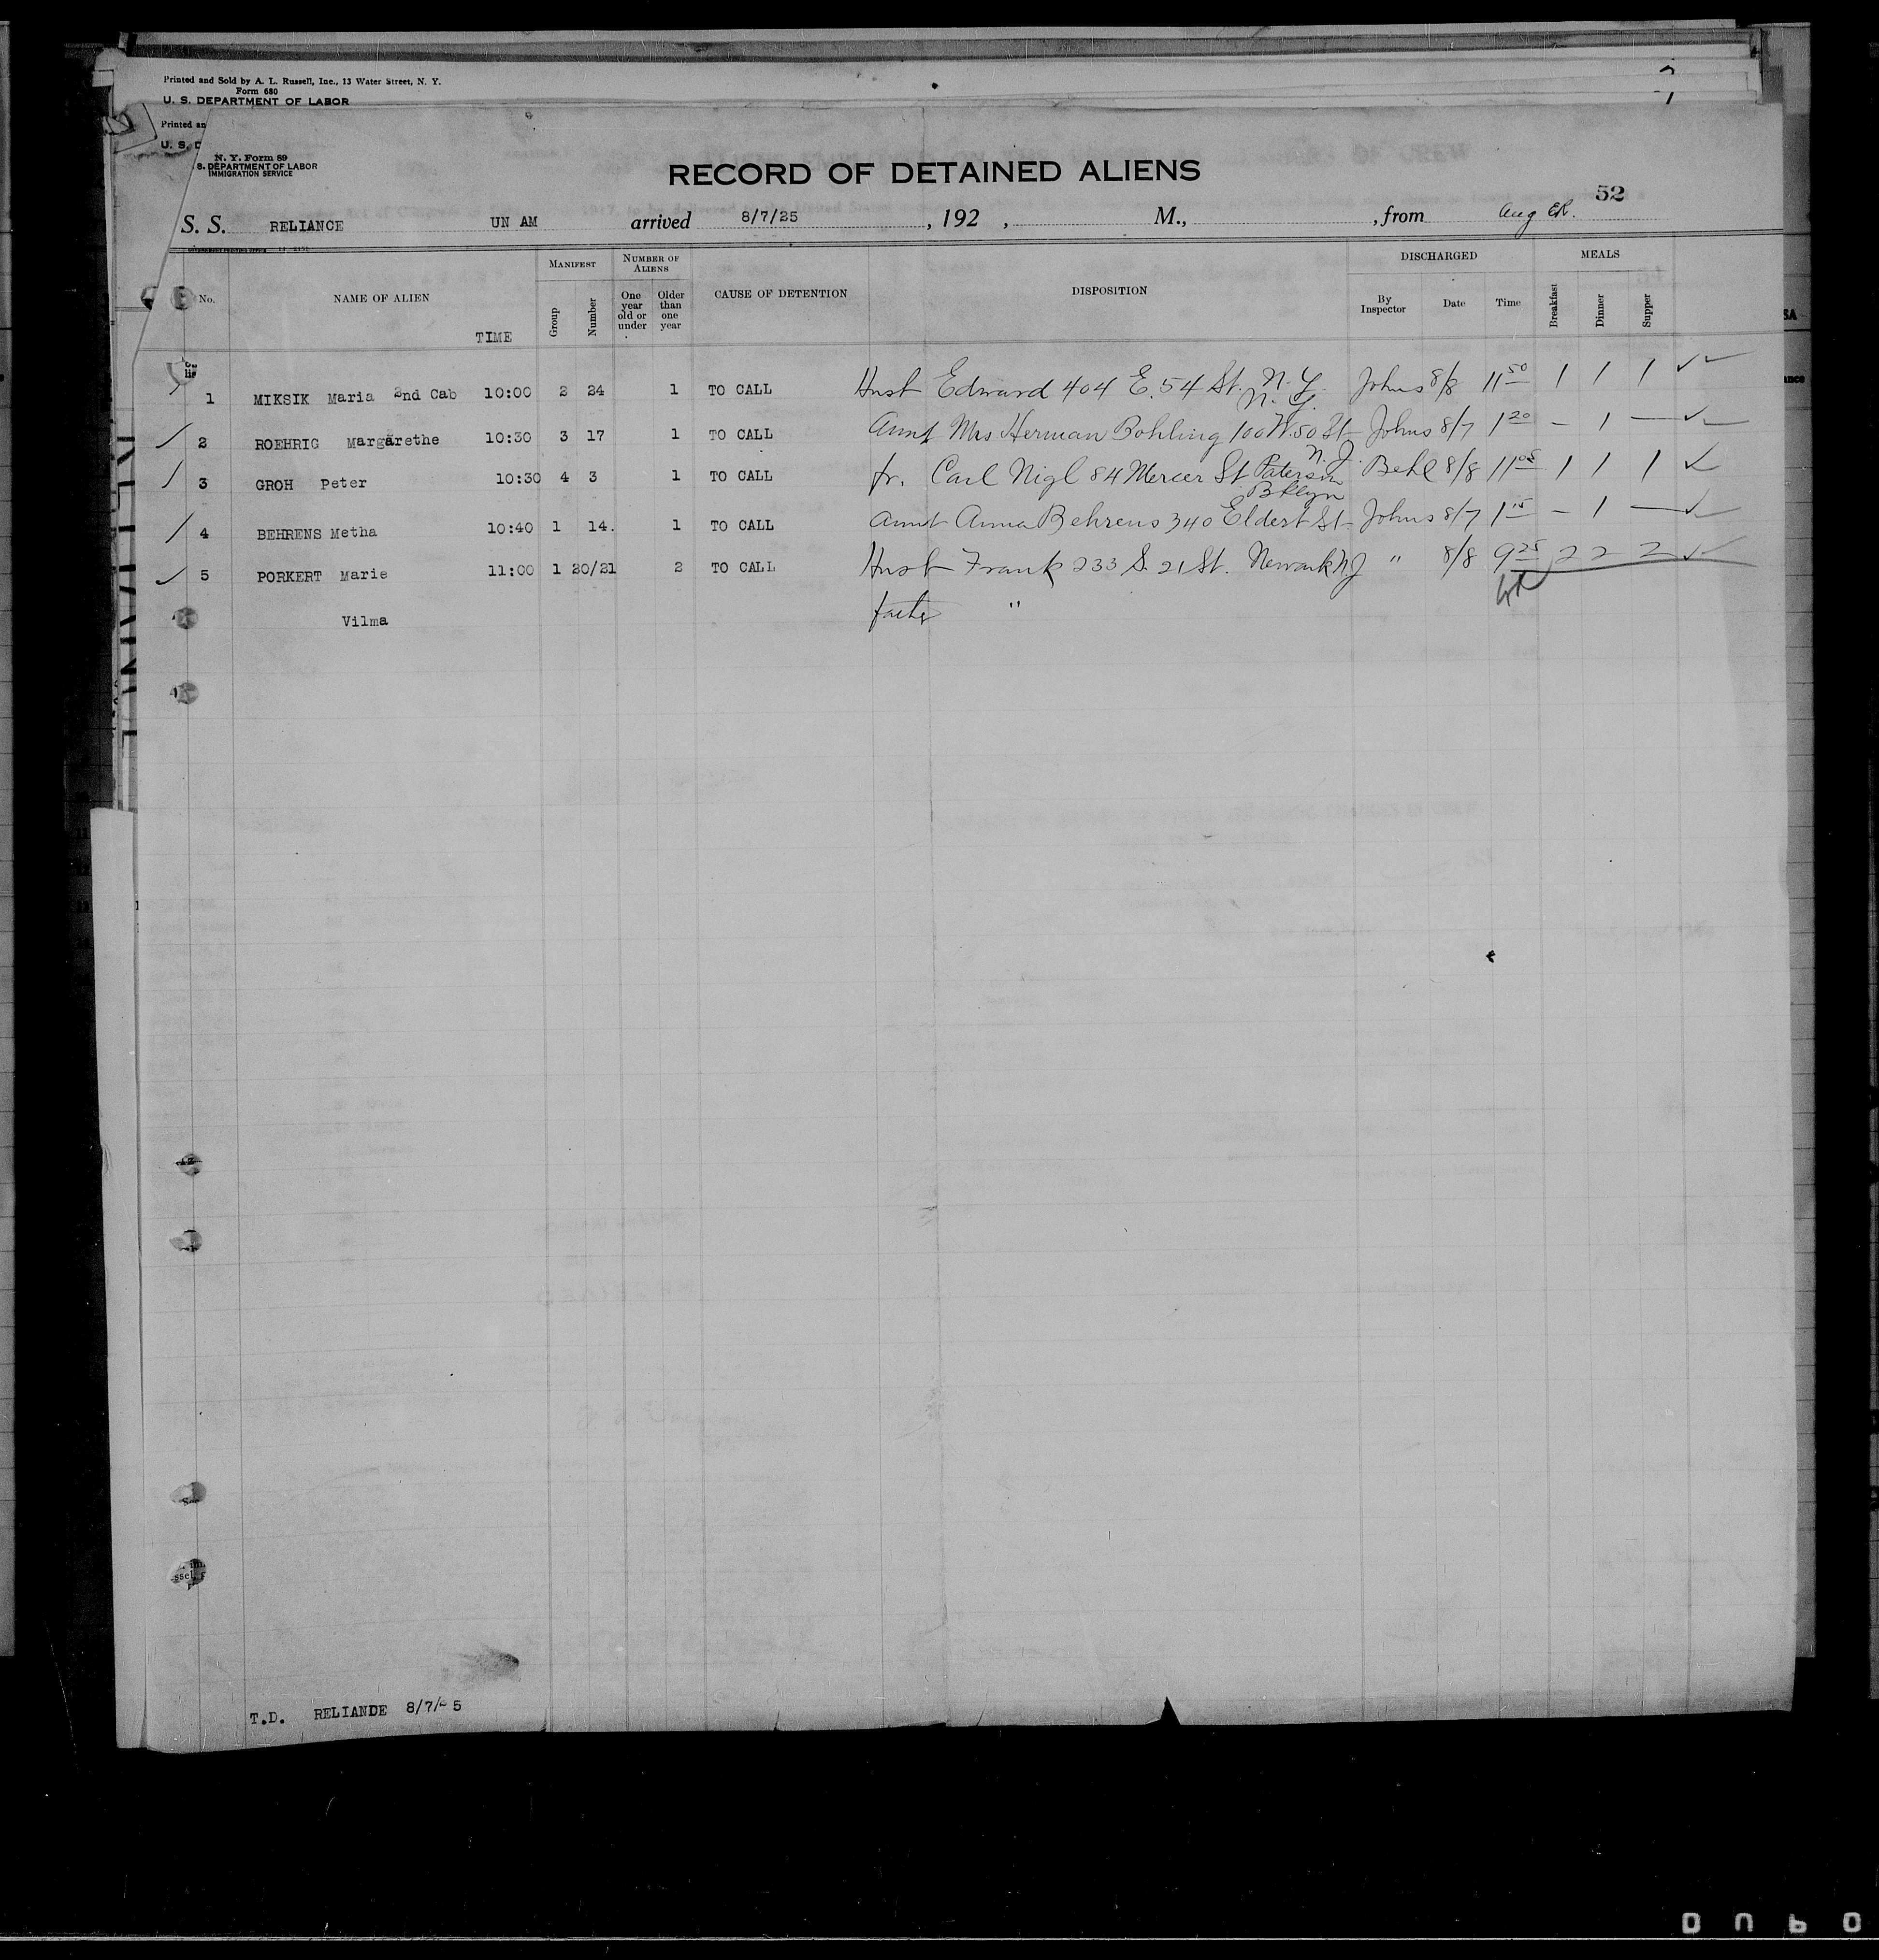 Printed and Sold by A. L. Russell, Inc., 13 Water Street, N. Y.
Form 680
U. S. DEPARTMENT OF LABOR
Printed an
U. S. D
N. Y. Form 89
S. DEPARTMENT OF LABOR
IMMIGRATION SERVICE
RECORD OF DETAINED ALIENS
52
S. S. RELIANCE UN AM arrived 8/7/25 , 192 , M., , from Aug
No. NAME OF ALIEN TIME MANIFEST Group Number NUMBER OF ALIENS One year old or under Older than one year CAUSE OF DETENTION DISPOSITION DISCHARGED By Inspector Date Time MEALS Breakfast Dinner Supper
1 MIKSIK Maria 2nd Cab 10:00 2 24 1 TO CALL Husb Edward 404 E. 54 St. N.Y. Johns 8/8 11 50 1 1 1 ✓
N.Y.
2 ROEHRIG Margarethe 10:30 3 17 1 TO CALL Aunt Mrs Herman Bohling 100 W. 50 St Johns 8/7 1 20 – 1 — ✓
N.J.
3 GROH Peter 10:30 4 3 1 TO CALL fr. Carl Nigl 84 Mercer St Paterson Behl 8/8 11 05 1 1 1 ✓
Bklyn
4 BEHRENS Metha 10:40 1 14. 1 TO CALL Aunt Anna Behrens 340 Eldert St Johns 8/7 1 15 – 1 — ✓
5 PORKERT Marie 11:00 1 20/21 2 TO CALL Husb Frank 233 S. 21 St. Newark NJ " 8/8 9 25 2 2 2 ✓
Vilma father "
T.D. RELIANDE 8/7/25